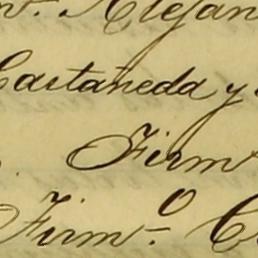 Alejan
Castañeda y
Firm
Firmº. C